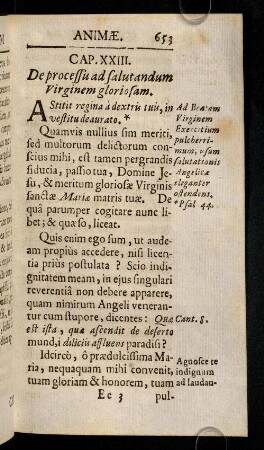 ANIMÆ. 653
CAP. XXIII.
De processu ad salutandum
Virginem gloriosam.
AStitit regina à dextris tuis, in
vestitu deaurato.*
Quamvis nullius sim meriti,
sed multorum delictorum con-
scius mihi, est tamen pergrandis
fiducia, passio tua, Domine Je-
su, & meritum gloriosæ Virginis
sanctæ Mariæ matris tuæ. De
quâ parumper cogitare nunc li-
bet; & quæso, liceat.
Quis enim ego sum, ut aude-
am propius accedere, nisi licen-
tia priùs postulata ? Scio indi-
gnitatem meam, in ejus singulari
reverentiâ non debere apparere,
quam nimirum Angeli veneran-
tur cum stupore, dicentes : Quæ
est ista, quæ ascendit de deserto
mundi, deliciis affluens paradisi ?
Idcircò, ô prædulcissima Ma-
ria, nequaquam mihi convenit,
tuam gloriam & honorem, tuam
Ee 3 pul-
Ad Beatam
Virginem
Exercitium
pulcherri-
mum, usum
salutationis
Angelicæ
eleganter
ostendens.
* Psal 44.
Cant. 8.
Agnosce te
indignum
ad laudan-